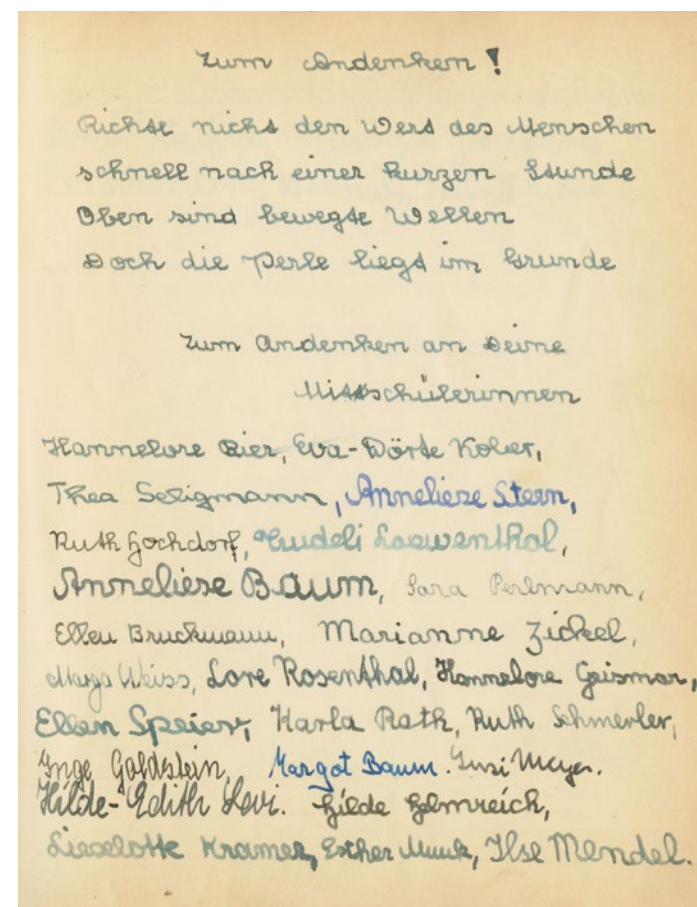 Zum Andenken!
Richte nicht den Wert des Menschen
schnell nach einer kurzen Stunde
Oben sind bewegte Wellen
Doch die Perle liegt im Grunde
Zum Andenken an Deine
Mitschülerinnen
Hannelore Bier, Eva-Dörte Kober,
Thea Seligmann, Anneliese Stern,
Ruth Hochdorf, Trudeli Loewenthal,
Anneliese Baum, Sara Perlmann,
Ellen Bruckmann, Marianne Zickel,
Marga Weiss, Lore Rosenthal, Hannelore Geismar,
Ellen Speier, Karla Rath, Ruth Schmerler,
Inge Goldstein, Margot Baum. Susi Mayer.
Hilde-Edith Levi. Hilde Helmreich,
Lieselotte Kramer, Esther Munk, Ilse Mendel.